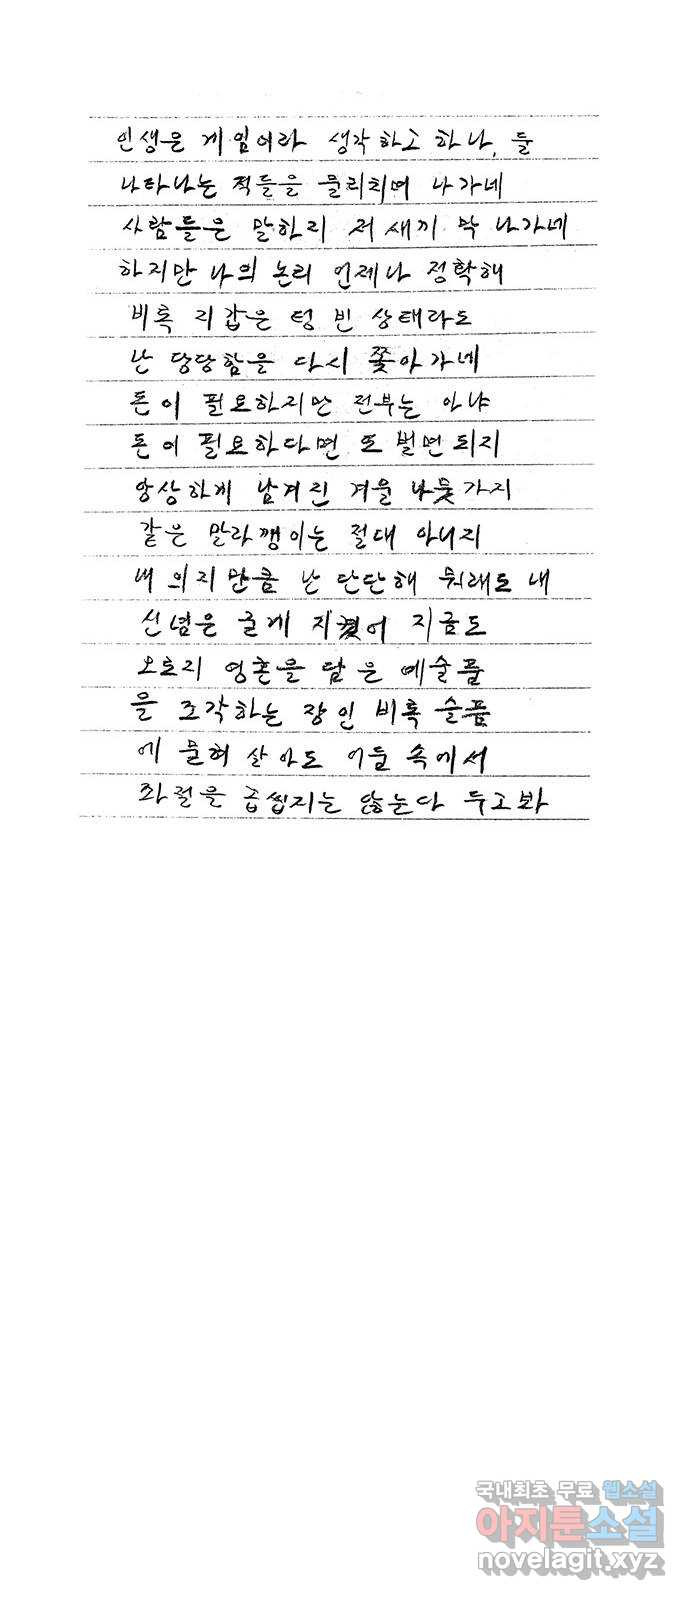 인생은 게임이라 생각하고 하나, 둘
나타나는 적들을 물리치며 나가네
사람들은 말하리 저 새끼 막 나가네
하지만 나의 논리 언제나 정확해
비록 지갑은 텅 빈 상태라도
난 당당함을 다시 쫓아가네
돈이 필요하지만 전부는 아냐
돈이 필요하다면 또 벌면 되지
앙상하게 남겨진 겨울 나뭇가지
같은 말라깽이는 절대 아니지
내 의지만큼 난 단단해 뭐래도 내
신념은 굳게 지켰어 지금도
오로지 영혼을 담은 예술품
을 조각하는 장인 비록 슬픔
에 묻혀 살아도 어둠 속에서
좌절을 곱씹지는 않는다 두고봐
국내최초 무료 웹소설
아지툰소설
novelagit.xyz